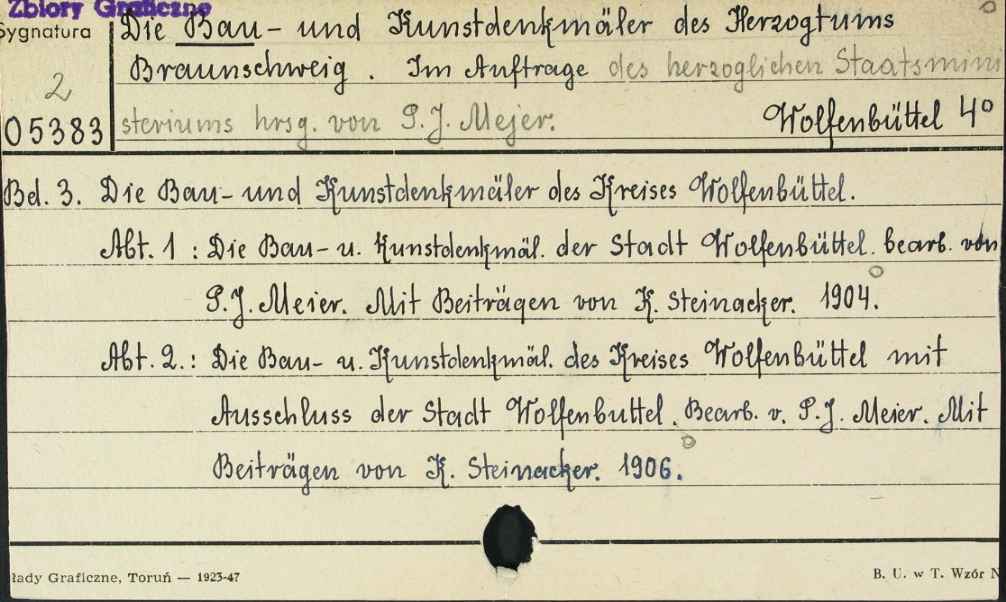 Zbiory Graficzne
Sygnatura
2
05383
Die Bau- und Kunstdenkmäler des Herzogtums
Braunschweig. Im Auftrage des herzoglichen Staatsmini
steriums hrsg. von P. J. Mejer.
Wolfenbüttel 4°
Bd. 3. Die Bau- und Kunstdenkmäler des Kreises Wolfenbüttel.
Abt. 1 : Die Bau- u. Kunstdenkmäl. der Stadt Wolfenbüttel. bearb. von
P. J. Meier. Mit Beiträgen von K. Steinacker. 1904.
Abt. 2. : Die Bau- u. Kunstdenkmäl. des Kreises Wolfenbüttel mit
Ausschluss der Stadt Wolfenbuttel. Bearb. v. P. J. Meier. Mit
Beiträgen von K. Steinacker. 1906.
łady Graficzne, Toruń — 1923-47
B. U. w T. Wzór N